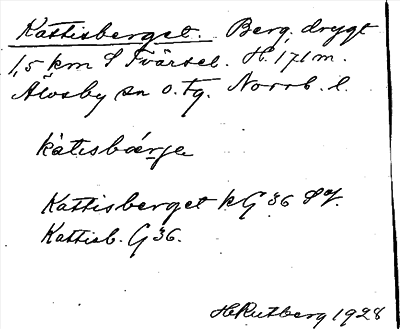 Kattisberget. Berg, drygt
1,5 km S Tvärsel. H. 171 m.
Älvsby sn o. tg. Norrb. l.
kàtısbærjə
Kattisberget kG 36 Sof.
Kattisb. G 36.
H Rutberg 1928